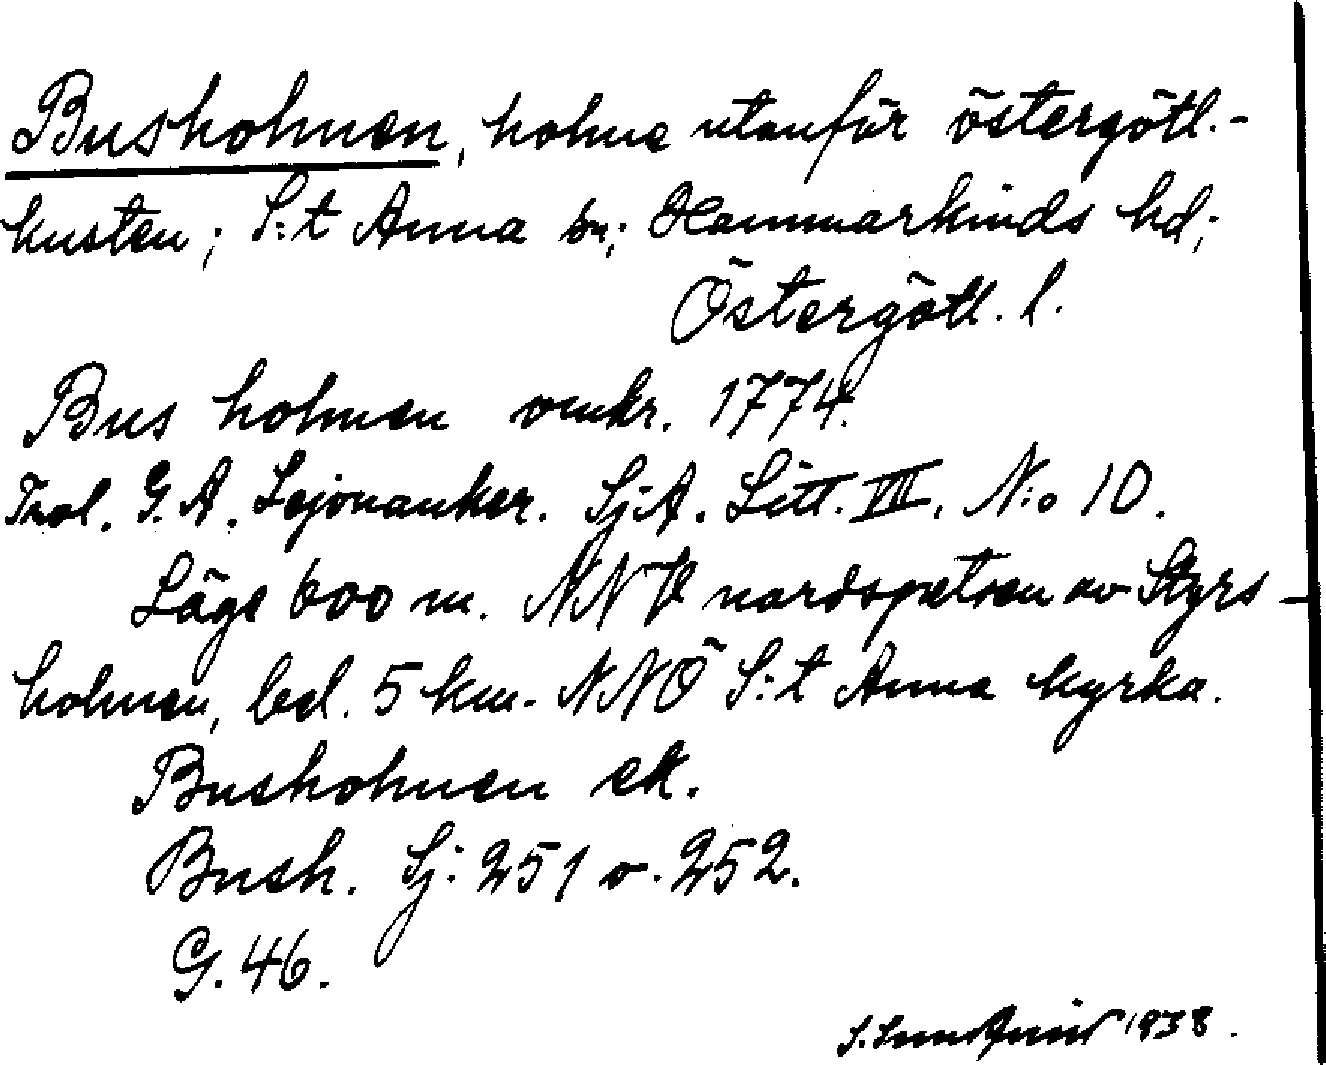 Busholmen, holme utanför östergötl.-
kusten; S:t Anna sn; Hammarkinds hd;
Östergötl. l.
Bus holmen omkr. 1774.
Trol. G. A. Lejonanker. SjA. Litt. VII. N:o 10.
Läge 600 m. NNV nordspetsen av Styrs-
holmen, bel. 5 km. NNÖ S:t Anna kyrka.
Busholmen ek.
Bush. Sj: 251 o. 252.
G. 46.
S. Lundqvist 1938.